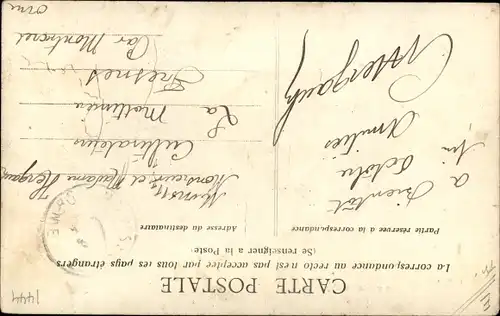 CARTE POSTALE
La correspondance au recto n'est pas acceptée par tous les pays étrangers
(Se renseigner à la Poste)
Partie réservée à la correspondance
a Bientôt
fin Octobre
Amitiés
Adresse du destinataire
Monsieur et Madame
Cultivateurs
La
Fresnes
Par Montsecret
Orne
1444